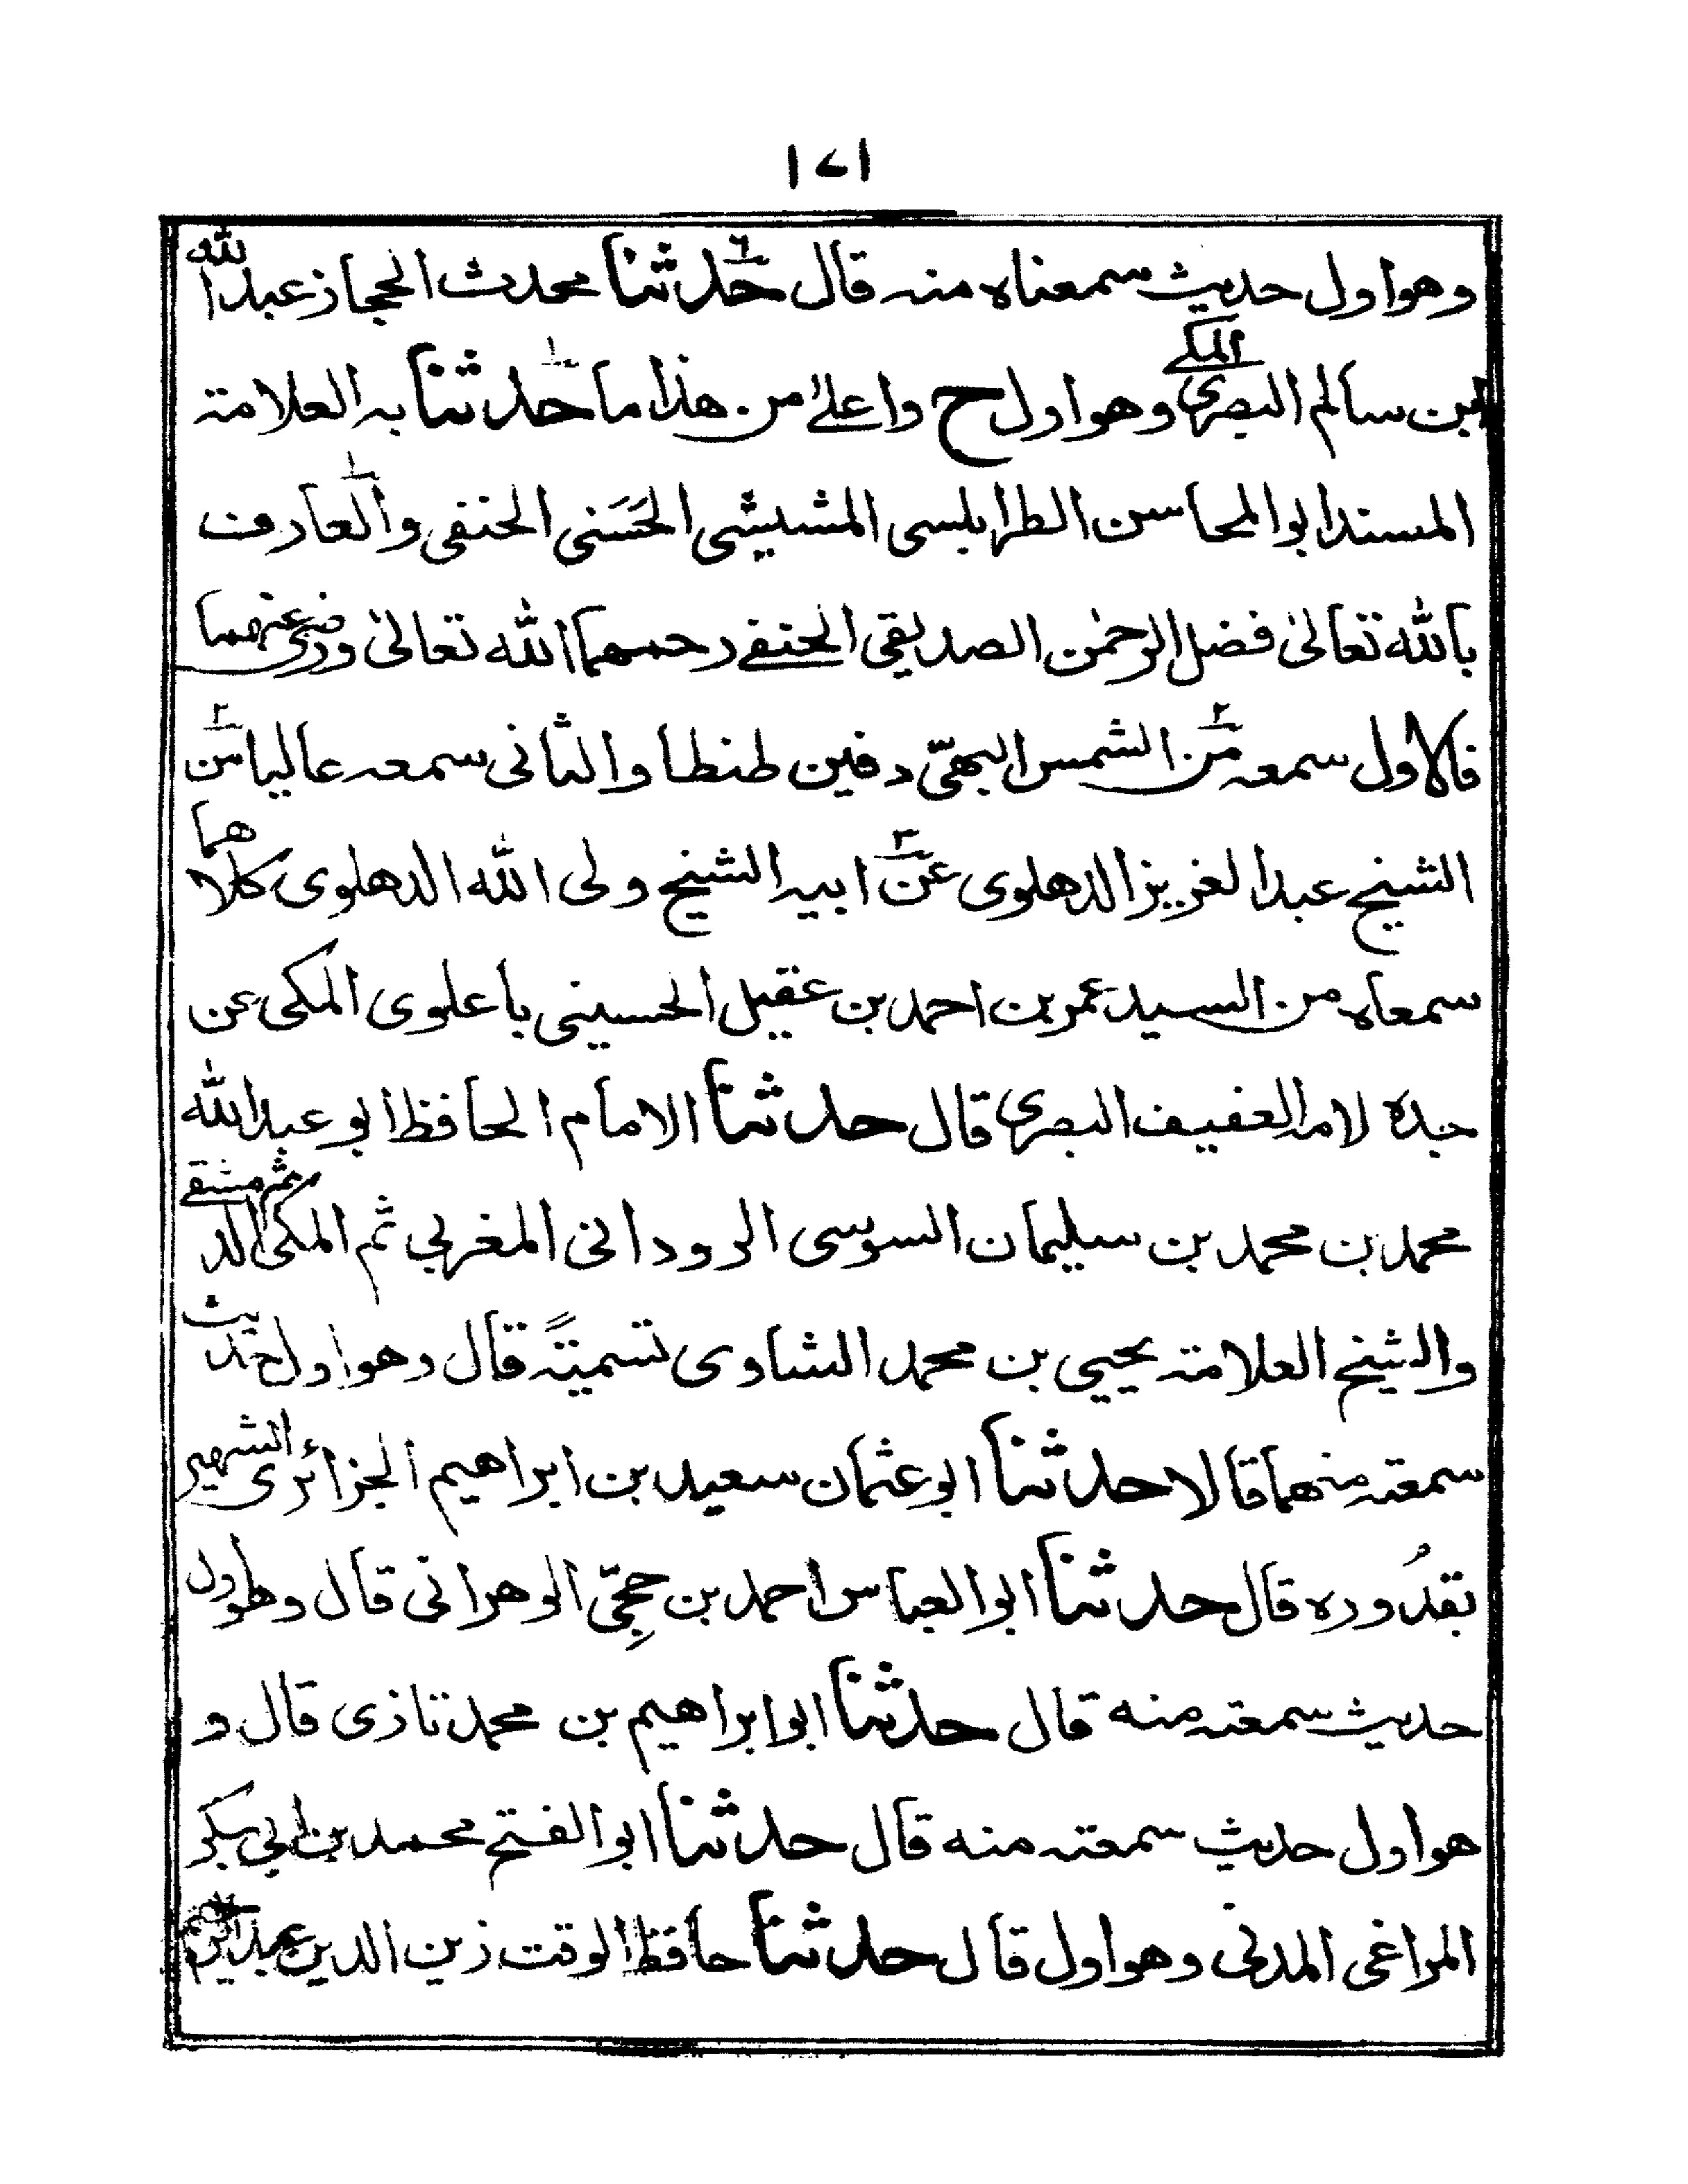 ١٧١
وهو اول حديث سمعناه منه قال حدثنا محدث الحجاز عبد الله
ابن سالم البصرى المكے وهو اول ح واعلےٰ من هذا ما حدثنا به العلامة
المسند ابو المحاسن الطرابلسى المشيشى الحَسَنى الحنفى والعارف
بالله تعالىٰ فضل الرحمٰن الصديقى الحنفے رحمهما الله تعالىٰ ورضى عنهما
فالاول سمعه من الشمس البهىّ دفين طنطا والثانى سمعه عاليا من
الشيخ عبد العزيز الدهلوى عن ابيه الشيخ ولى الله الدهلوى كلاهما
سمعاه من السيد عمر بن احمد بن عقيل الحسينى باعلوى المكى عن
جده لامه العفيف البصرى قال حدثنا الامام الحافظ ابو عبد الله
محمد بن محمد بن سليمان السوسى الرودانى المغربي ثم المكى ثم الدمشقے
والشيخ العلامة يحيى بن محمد الشاوى تسميةً قال وهو اول حديث
سمعته منهما قالا حدثنا ابو عثمان سعيد بن ابراهيم الجزائرى الشهير
بقدُوره قال حدثنا ابو العباس احمد بن حجِّى الوهرانى قال وهو اول
حديث سمعته منه قال حدثنا ابو ابراهيم بن محمد تازى قال و
هو اول حديث سمعته منه قال حدثنا ابو الفتح محمد بن ابى بكر
المراغى المدنى وهو اول قال حدثنا حافظ الوقت زين الدين عبد الرحيم